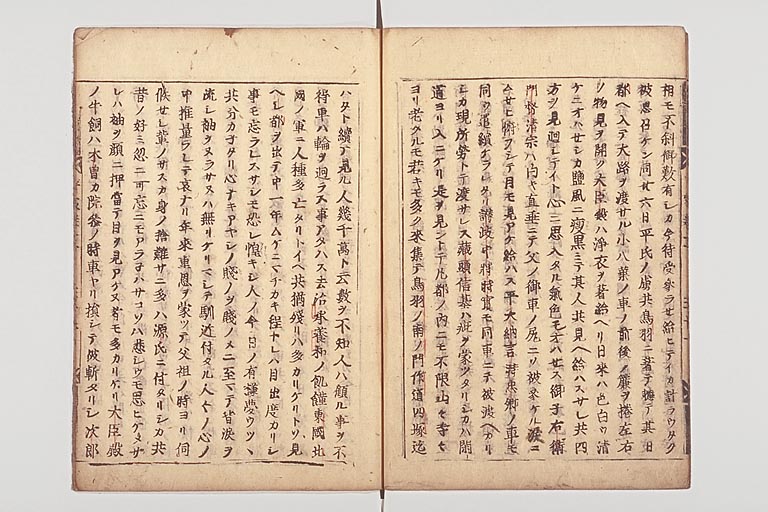 相モ不斜御数有シカ今待受参ラセ給ヒテイカ計ラウタク
被思召ケン同廿六日平氏ノ虜共鳥羽ニ著テ軈テ其日
都ヘ入テ大路ヲ渡サル小八葉ノ車ノ前後ノ簾ヲ捲左右
ノ物見ヲ開ク大臣殿ハ浄衣ヲ著給ヘリ日来ハ色白ウ清
ケニオハセシカ塩風ニ痩黒ミテ其人共見ヘ給ハスサレ共四
方ヲ見廻シテイト心ニ思入タル気色モオハセス御子右衛
門督清宗ハ白キ直垂ニテ父ノ御車ノ尻ニソ被参ケル涙ニ
ムセヒ俯フシテ目モ見アケ給ハス平大納言時忠卿ノ車モ
同ク遣続ケラレタリ讃岐中将時実モ同車ニテ被渡ヘカリ
シカ現所労トテ渡サレス蔵頭信基ハ疵ヲ蒙ツタリシカハ閑
道ヨリ入ニケリ是ヲ見ントテ凡都ノ内ニモ不限山々寺々
ヨリ老タルモ若キモ多ク来集テ鳥羽ノ南ノ門作道四塚迄
ハタト続テ見ル人幾千萬ト云数ヲ不知人ハ顧ル事ヲ不
得車ハ輪ヲ廻ラス事アタハス去治承養和ノ飢饉東國北
國ノ軍ニ人種多亡タリトイヘ共猶残リハ多カリケリトソ見
ヘシ都ヲ出テ中一年ムケニマチカキ程トシハ目出度カリシ
事モ忘ラレスサシモ恐レ惶キシ人ノ今日ノ有様夢ウツヽ
共分カ子タリ心ナキアヤシノ賤ノヲ賤ノメニ至マテ皆涙ヲ
流シ袖ヲヌラサヌハ無リケリマシテ馴近付タル人々ノ心ノ
中推量ラレテ哀ナリ年来重恩ヲ蒙ツテ父祖ノ時ヨリ伺
候セシ輩ノサスカ身ノ捨難サニ多ハ源氏ニ付タリシカ共
昔ノ好ミ忽ニ可忘ニモアラ子ハサコソハ悲シウモ思ヒケメサ
レハ袖ヲ顔ニ押當テ目ヲ見アケヌ者モ多カリケリ大臣殿
ノ牛飼ハ木曽カ院参ノ時車ヤリ損シテ被斬タリシ次郎